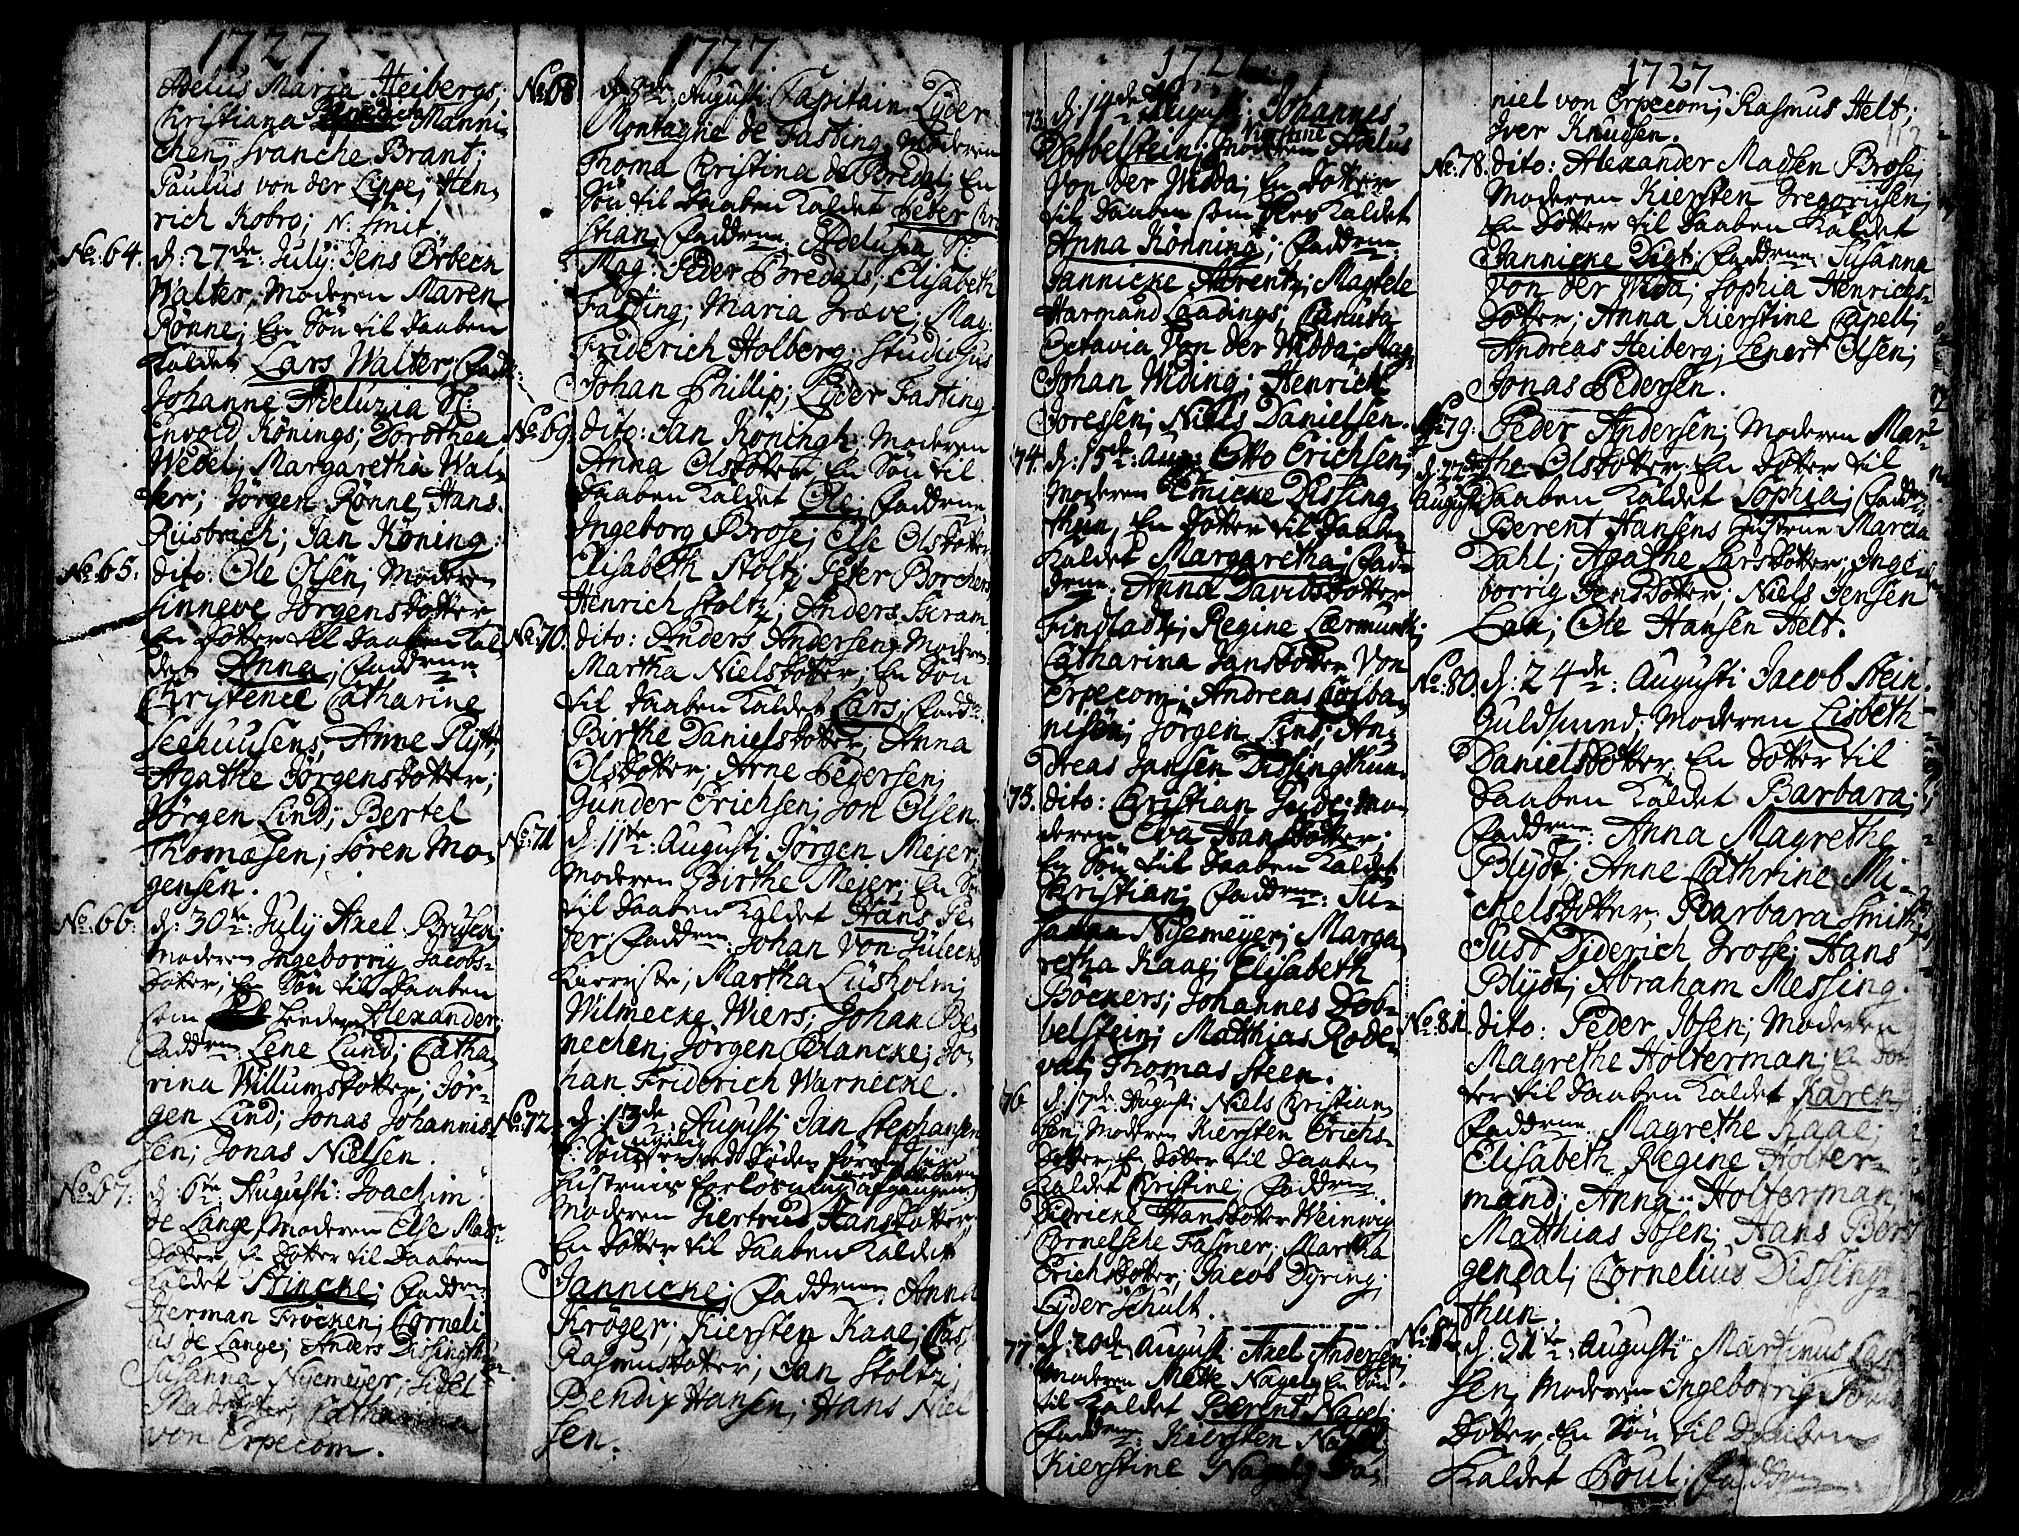 1727.
Adelus Maria Heibergs;
Christiana Manni-
chen; Svanche Brant;
Paulus von der Lippe; Hen-
rich Kobro; N. Smit.
No: 64. d: 27de July: Jens Örbech
Walter, Moderen Maren
Rönne; En Sön til Daaben
Kaldet Lars Walter; Fadd:
Johanne Adeluzia Sl:
Envold Könings; Dorothea
Wedel; Margaretha Wal-
ter; Jörgen Rönne, Hans
Riisbrich; Jan Köning.
No: 65. dito: Ole Olsen; Moderen
Sinneve Jörgensdotter
En Dotter til Daaben Kal-
det Anna; Faddrene
Christence Catharine
Seehuusens, Anne Plytt,
Agathe Jörgensdotter;
Jörgen Lind; Bertel
Thomæsen; Sören Mo-
gensen.
No: 66. d: 30te July Axel Brusen;
Moderen Ingeborrig Jacobs-
dotter; En Sön til Daaben
som heder Alexander;
Faddrene: Lene Lund; Catha-
rina Willumsdotter; Jör-
gen Lind; Jonas Johannis-
sen; Jonas Nielsen.
No: 67. d: 6te Augusti: Joachim
de Lange, Moderen Else Mads-
dotter, En Dotter til Daaben
Kaldet Stincke; Faddrene:
Herman Fröchen; Corneli
us de Lange; Anders Dissingthun
Susanna Niemeyer; Sidsel
Madsdotter, Catharina
von Erpecom.
1727.
No: 68 d: 9de Augusti: Capitain Lyder
Montagne de Fasting, Moderen
Thoma Christina de Bredal; En
Sön til Daaben Kaldet Peder Chri
stian; Faddrene Adelusa Sl:
Mag: Peder Bredals; Elisabeth
Fasting; Maria Græve; Mag:
Friderich Holberg; Studiosus
Johan Phillip; Lyder Fasting
No: 69. dito: Jan Köningh; Moderen
Anna Olsdotter, En Sön til
Daaben Kaldet Ole; Faddrene
Ingeborg Brose; Else Olsdotter
Elisabeth Stoltz; Peter Borchers
Henrich Stoltz; Anders Skram.
No: 70. dito: Anders Andersen, Moderen
Martha Nielsdotter; En Sön
til Daaben Kaldet Lars; Faddr:
Birthe Danielsdotter, Anna
Olsdotter; Arne Pedersen;
Gunder Erichsen; Jon Olsen.
No: 71 d: 11te: Augusti Jörgen Meier,
Moderen Birthe Meier; En Sön
til Daaben Kaldet Hans Pe
der Faddrene: Johan von Jülechs
Kierriste; Martha Lusholm;
Wilmecke Wiers; Johan Be-
nechen; Jörgen Blancke; Jo-
han Friderich Warnecke.
No: 72. d: 13de: Augusti Jan Stephansen
Moderen Giertrud Hansdotter
En Dotter til Daaben Kaldet
Jannicke; Faddrene: Anna
Kröger; Kiersten Kaae;
Rasmusdotter; Jan Stoltz;
Bendix Hansen; Hans Niel
sen.
1727.
73. d: 14de Augusti; Johannes
Dobbelstein; Moderen Kierstine Aalus
Von der Widda; En Dotter
til Daaben som blev Kaldet
Anna Könning; Faddrene
Jannicke Ahrentz; Magtele
Harmand Ladings; Canuta
Octavia Von der Widda; Mag:
Johan Widing; Henrich
Joressen; Niels Danielsen.
74. d: 15de: Aug: Otto Erichsen;
Moderen Emicke Dissing
thun, En Dotter til Daaben
Kaldet Margaretha; Fad-
drene: Anna Davidsdotter
Findstadt; Regine Lærmundt;
Catharina Jansdotter Von
Erpecom; Andreas
nisen; Jörgen Lind; An-
dreas Jansen Dissingthun.
75. dito: Christian Juide; Mo-
deren Eva Hansdotter;
En Sön til Daaben Kaldet
Christian; Faddrene: Su-
sanna Niemeyer; Marga
retha Kaae; Elisabeth
Böckers; Johannes Dob-
belstein; Matthias Rode-
val; Thomas Steen.
76 d: 17de: Augusti Niels Christian-
sen; Moderen Kiersten Erichs-
dotter; En Dotter til Daaben
Kaldet Christine; Faddrene.
Didricke Hansdotter Weinwig
Cornelsche Fasmer; Martha
Erichsdotter; Jacob Dyring;
Lyder Schult.
77. d: 20de Augusti Axel Andersen;
Moderen Mette Nagel; En Sön
til Kaldet Berent Nagel;
Faddrene: Kiersten Nagel;
Kierstine Nagel; Da-
1727
niel von Erpecom; Rasmus Helt;
Iver Knudsen.
No: 78. dito: Alexander Madsen Brose;
Moderen Kiersten Gregorisen;
En Dotter til Daaben Kaldet
Jannicke Digt; Faddrene Susanna
von der Wida; Sophia Henrichs-
dotter; Anna Kierstine Capell;
Andreas Heiberg; Lenert Olsen;
Jonas Pedersen.
No: 79. Peder Andersen; Moderen Mar-
the Olsdotter. En Dotter til
Augusti Daaben Kaldet Sophia; Faddrene:
Berent Hansens Hustrue Marcia
Dahl; Agathe Larsdotter; Inge-
borrig Jensdotter; Niels Jensen
Lax; Ole Hansen Helt.
No: 80. d: 24de: Augusti Jacob Stein.
Guldsmed; Moderen Lisbeth
Danielsdotter; En Dotter til
Daaben Kaldet Barbara;
Faddrene Anna Magrethe
Blydt; Anne Cathrine Mi-
chelsdotter, Barbara Smith;
Just Diderich Grose; Hans
Blydt; Abraham Messing.
No: 81. dito: Peder Ibsen; Moderen
Magrethe Holterman; En Dot-
ter til Daaben Kaldet Karen,
Faddrene. Magrethe Kaae;
Elisabeth Regine Holter-
mand; Anna Holterman;
Matthias Ibsen; Hans Borg
gendal; Cornelius Dissing-
thun.
No: 82 d: 31te: Augusti Martinus Las-
sen; Moderen Ingeborrig
Dotter; En Sön til Daaben
Kaldet Poul; Faddrene